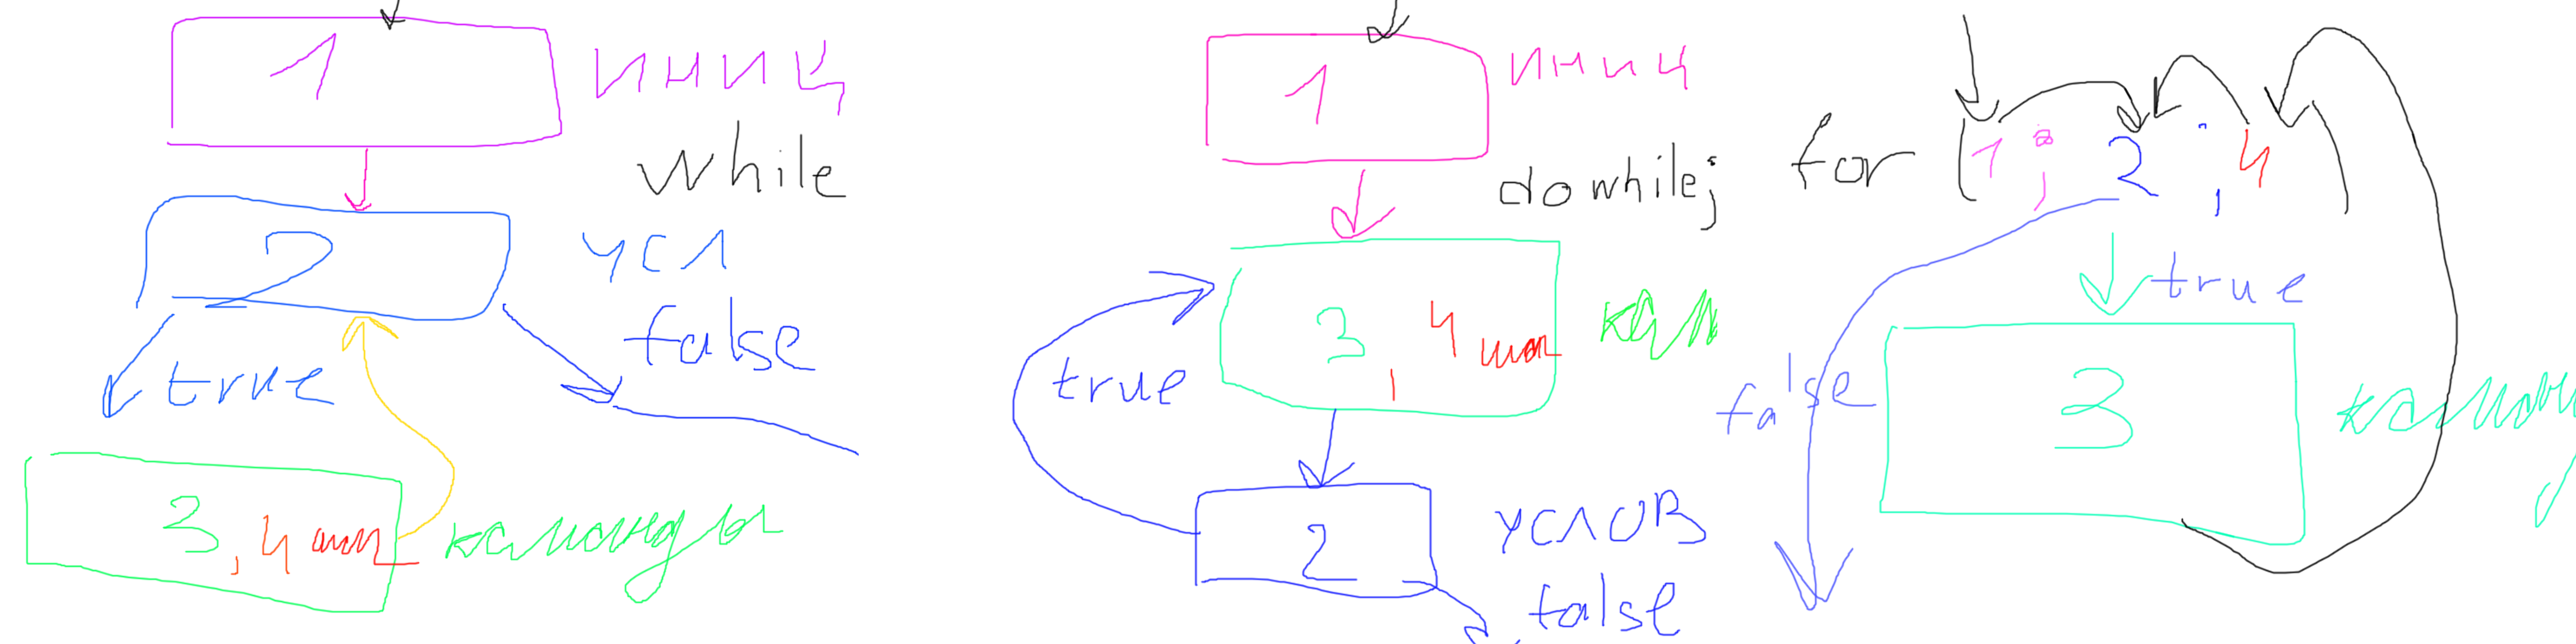 1 иниц
while
2 усл
true
false
3, 4 шаг
команды
1 иниц
dowhile;
3, 4 шаг
ком
true
2 услов
false
for (1; 2; 4)
true
false
3
команд